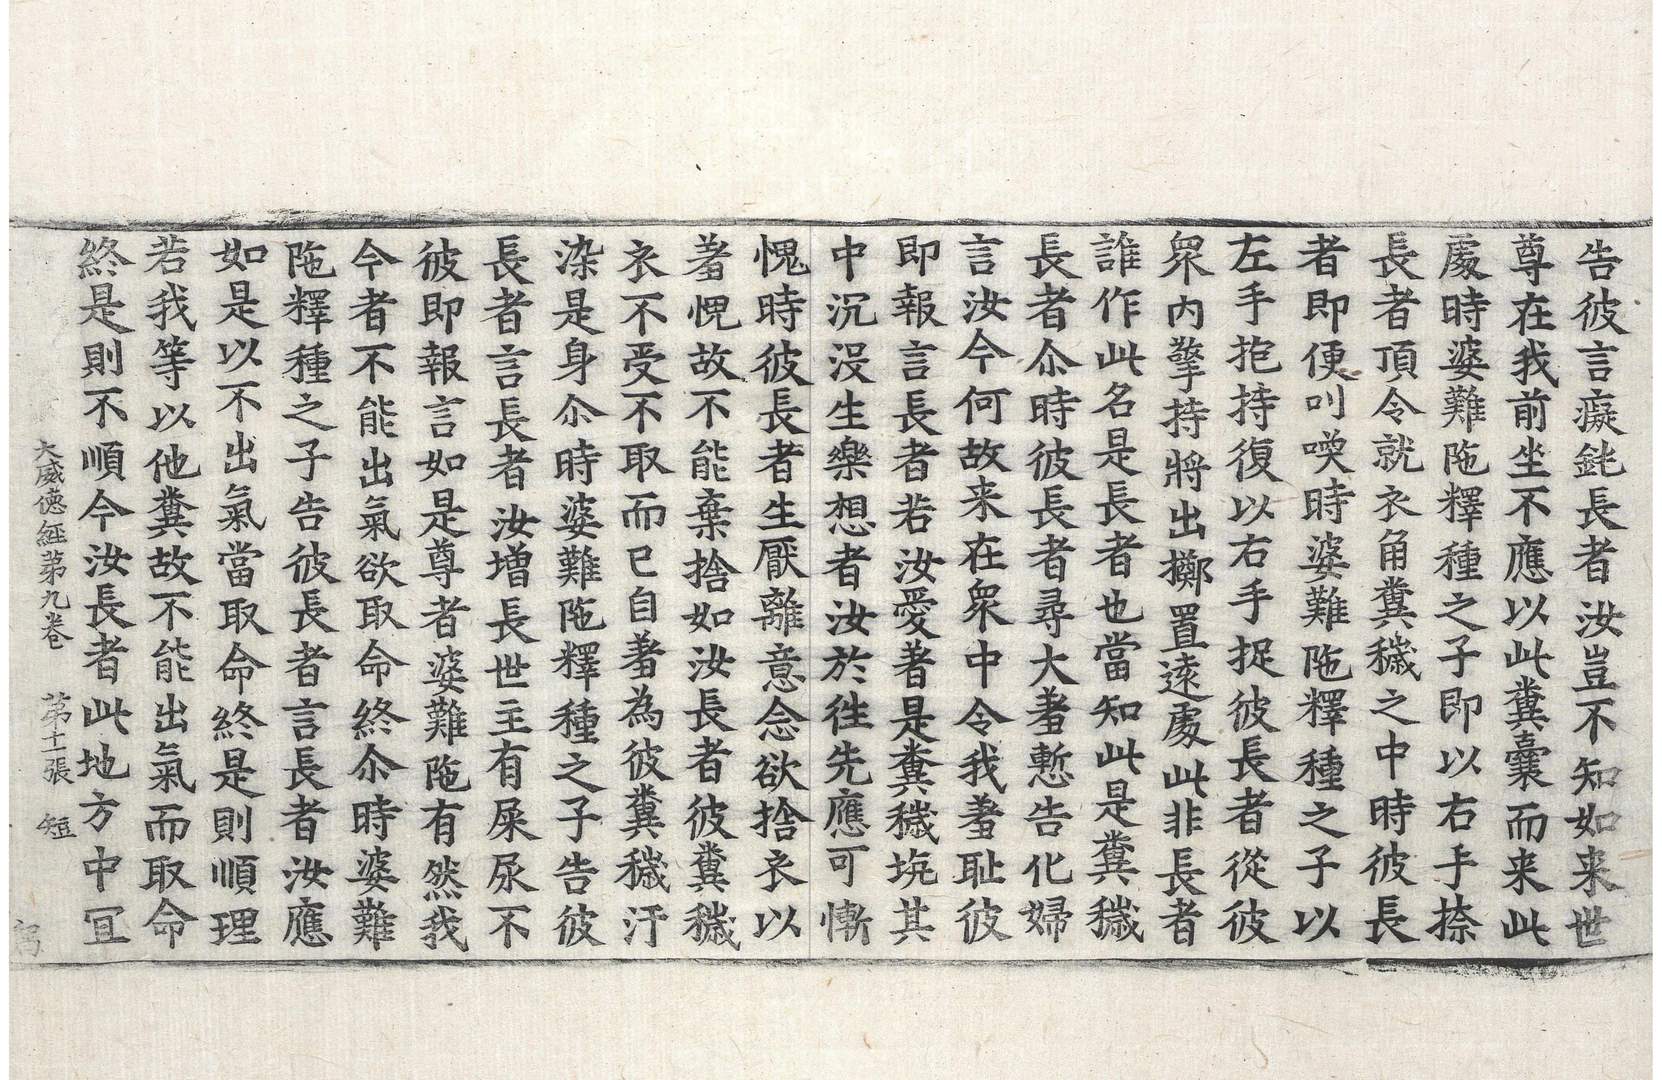 告彼言癡鈍長者汝豈不知如来世
尊在我前坐不應以此糞囊而来此
處時婆難陁釋種之子即以右手捺
長者頂令就衣角糞穢之中時彼長
者即便叫喚時婆難陁釋種之子以
左手抱持復以右手捉彼長者從彼
衆内擎持將出擲置逺處此非長者
誰作此名是長者也當知此是糞穢
長者尒時彼長者尋大羞慙告化婦
言汝今何故来在衆中令我羞耻彼
即報言長者若汝愛著是糞穢坑其
中沉没生樂想者汝於徃先應可慚
愧時彼長者生厭離意念欲捨衣以
羞愧故不能棄捨如汝長者彼糞穢
衣不受不取而已自羞為彼糞穢汙
染是身尒時婆難陁釋種之子告彼
長者言長者汝增長世主有屎尿不
彼即報言如是尊者婆難陁有然我
今者不能出氣欲取命終尒時婆難
陁釋種之子告彼長者言長者汝應
如是以不出氣當取命終是則順理
若我等以他糞故不能出氣而取命
終是則不順今汝長者此地方中冝
大威德經第九卷 第十一張 短